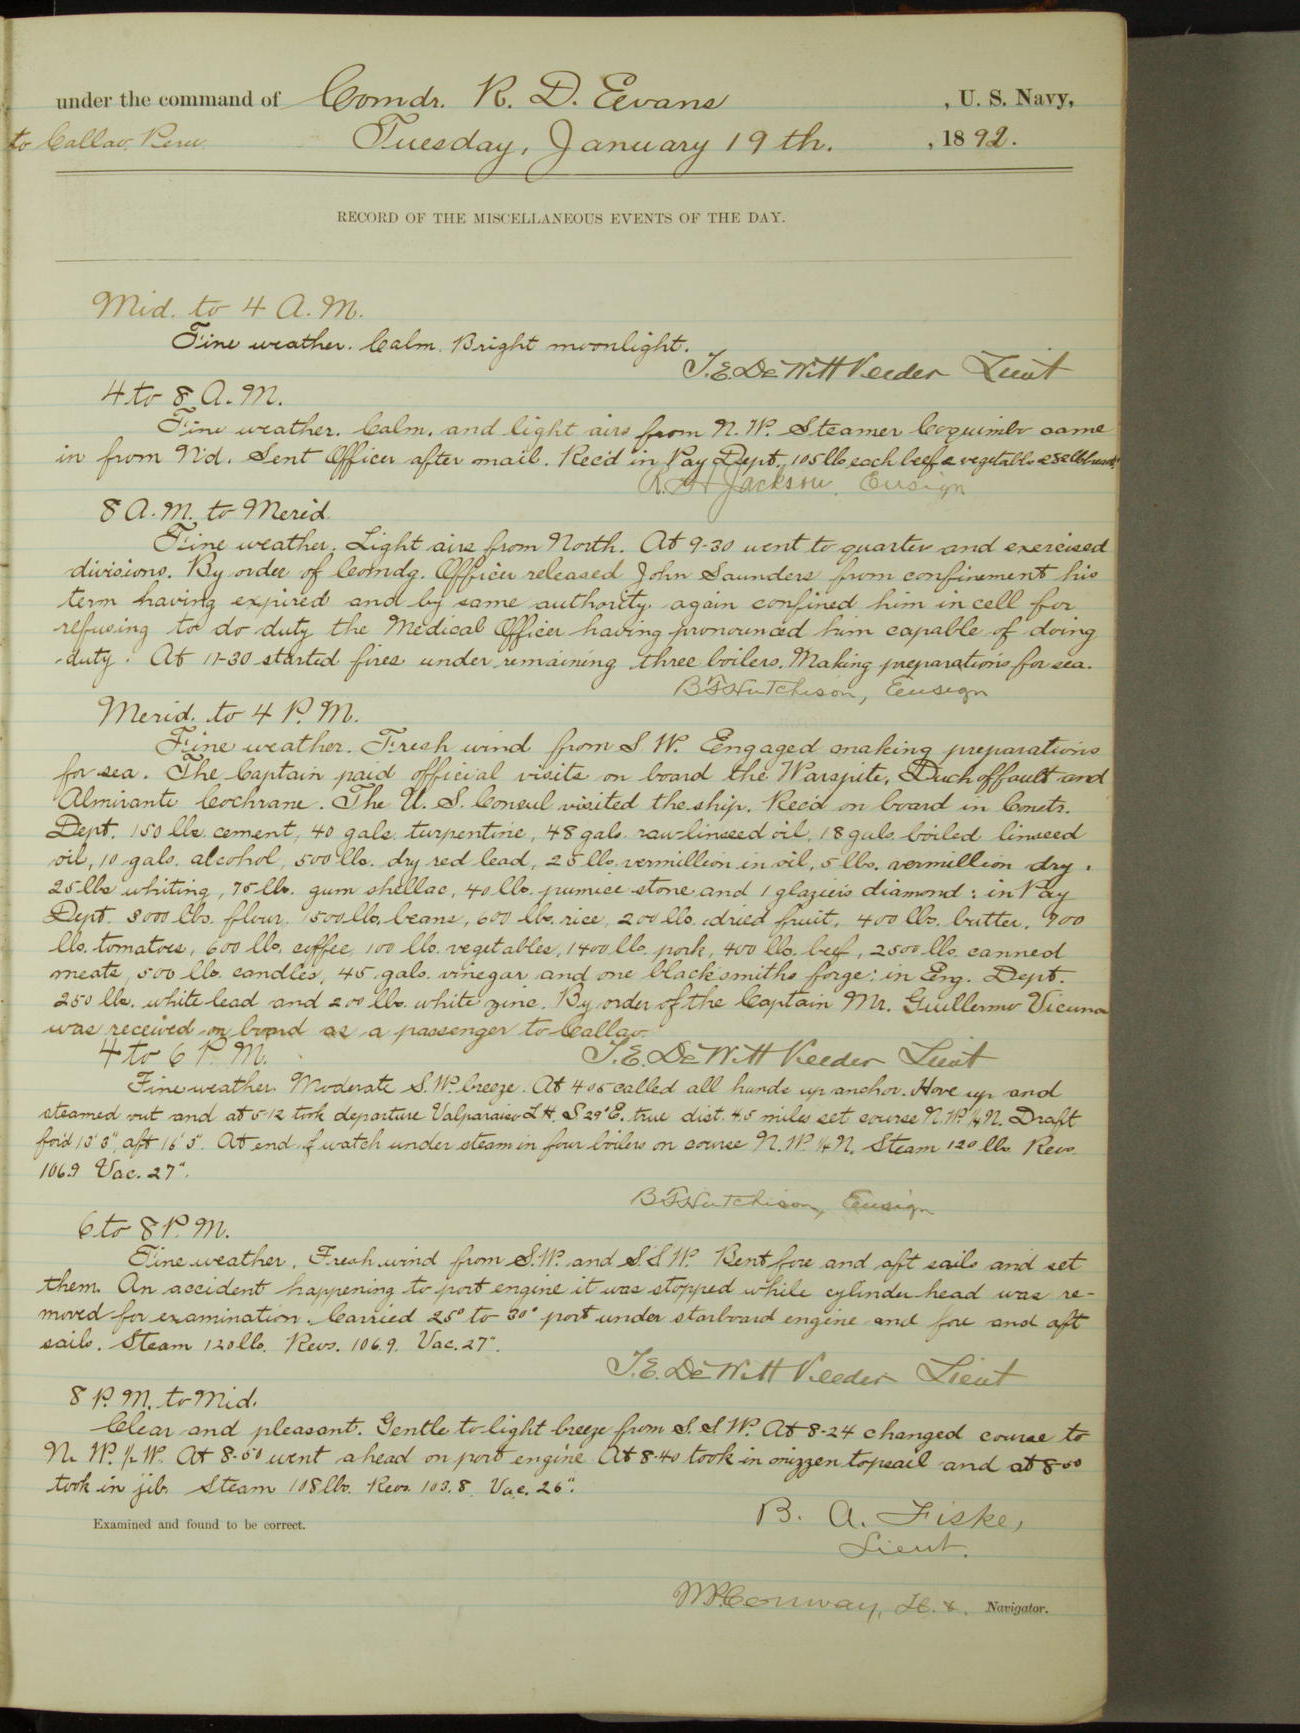 under the command of Comdr. R. D. Evans , U. S. Navy,
to Callao, Peru Tuesday, January 19th. , 1892.
RECORD OF THE MISCELLANEOUS EVENTS OF THE DAY.
Mid. to 4 A.M.
Fine weather. Calm. Bright moonlight.
T.E. DeWitt Veeder Lieut
4 to 8 A.M.
Fine weather. Calm, and light airs from N.W. Steamer Coquimbo came
in from N'd. Sent Officer after mail. Rec'd in Pay Dept., 105 lb each beef & vegetables
R. H. Jackson, Ensign
8 A.M. to Merid.
Fine weather. Light airs from North. At 9-30 went to quarter and exercised
divisions. By order of Comdg. Officer released John Saunders from confinement his
term having expired and by same authority again confined him in cell for
refusing to do duty the Medical Officer having pronounced him capable of doing
duty. At 11-30 started fires under remaining three boilers. Making preparations for sea.
B F Hutchison, Ensign
Merid. to 4 P.M.
Fine weather. Fresh wind from S W. Engaged making preparations
for sea. The Captain paid official visits on board the Warspite, Duchoffault and
Almirante Cochrane. The U. S. Consul visited the ship. Rec'd on board in Constr.
Dept. 150 lbs. cement, 40 gals. turpentine, 48 gals. raw linseed oil, 18 gals. boiled linseed
oil, 10 gals. alcohol, 500 lbs. dry red lead, 25 lbs. vermillion in oil, 5 lbs. vermillion dry,
25 lbs whiting, 75 lbs. gum shellac, 40 lbs. pumice stone and 1 glazier's diamond: in Pay
Dept. 8000 lbs. flour, 1500 lbs. beans, 600 lbs. rice, 200 lbs. dried fruit, 400 lbs. butter, 900
lbs. tomatoes, 600 lbs. coffee, 100 lbs. vegetables, 1400 lbs. pork, 400 lbs. beef, 2500 lbs. canned
meats, 500 lbs. candles, 45 gals. vinegar and one blacksmiths forge: in Eng. Dept.
250 lbs. white lead and 200 lbs. white zinc. By order of the Captain Mr. Guillermo Vicuna
was received on board as a passenger to Callao.
4 to 6 P.M. T.E. DeWitt Veeder Lieut
Fine weather. Moderate S.W. breeze. At 4 05 called all hands up anchor. Hove up and
steamed out and at 5-12 took departure Valparaiso L.H. S 29° E. true dist. 4.5 miles set course N.W. ¼ N. Draft
for'd 13' 3", aft 16' 5". At end of watch under steam in four boilers on course N.W. ¼ N. Steam 120 lbs. Revs.
106.9 Vac. 27".
B F Hutchison, Ensign
6 to 8 P.M.
Fine weather. Fresh wind from S.W. and S.S.W. Bent fore and aft sails and set
them. An accident happening to port engine it was stopped while cylinder head was re-
moved for examination. Carried 25° to 30° port under starboard engine and fore and aft
sails. Steam 120 lbs. Revs. 106.9. Vac. 27".
T.E. DeWitt Veeder Lieut
8 P.M. to Mid.
Clear and pleasant. Gentle to light breeze from S.S W. At 8-24 changed course to
N. W. ½ W. At 8-50 went ahead on port engine. At 8-40 took in mizzen topsail and at 8-50
took in jib. Steam 108 lbs. Revs. 103.8. Vac. 26".
B. A. Fiske,
Lieut.
Examined and found to be correct.
W.P. Conway, Navigator.